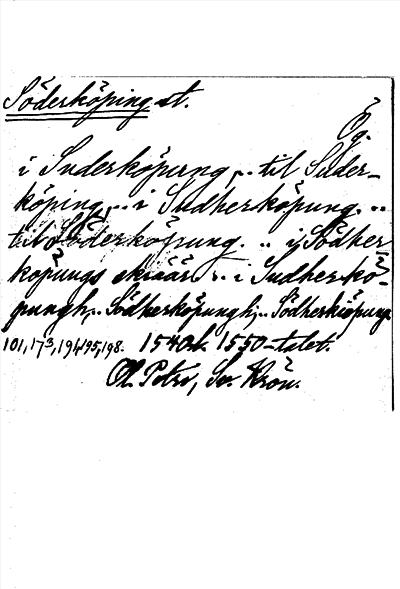 Söderköping st.
Ög.
i Suderköpung, .. til Suder-
köping, .. i Sudherköpung. ..
til Söderköpung. .. i Södher
köpungs skriäär .. i Sudherkö-
pungh, .. Södherköpungh; .. Södherkiöpung.
101, 173, 194, 195, 198. 1540 o. 1550-talet.
Ol. Petri, Sv. Krön.